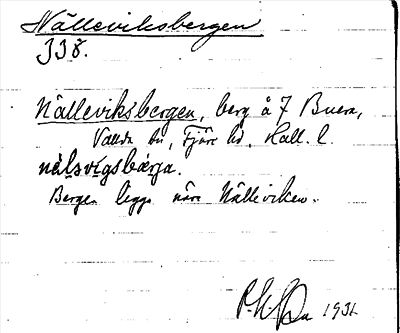 Nälleviksbergen
338.
Nälleviksbergen, berg å 7 Buera,
Vallda sn, Fjäre hd, Hall. l.
nälsvigsbärja.
Bergen ligga nära Nälleviken.
1931